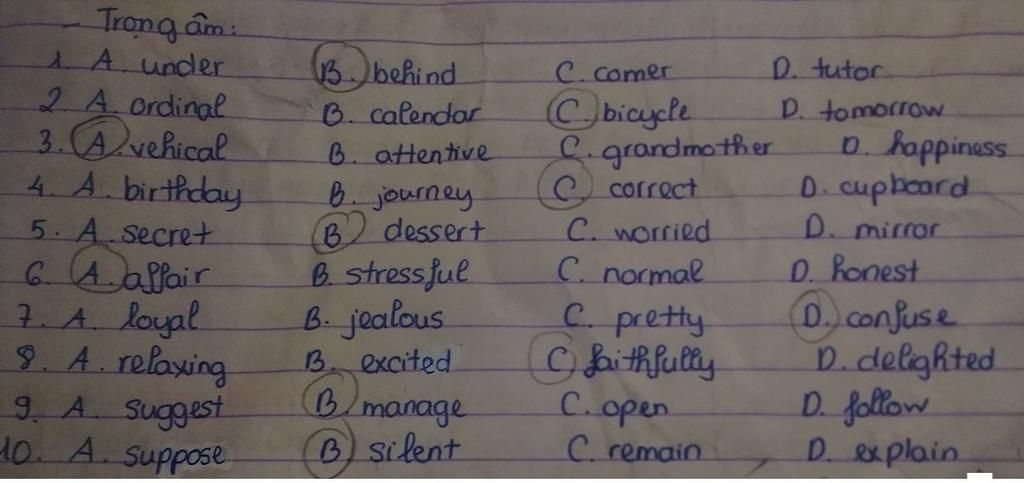 - Trọng âm:
1 A. under B. behind C. comer D. tutor
2 A. ordinal B. calendar C. bicycle D. tomorrow
3. A. vehical B. attentive C. grandmother D. happiness
4. A. birthday B. journey C. correct D. cupboard
5. A. secret B. dessert C. worried D. mirror
6. A. affair B. stressful C. normal D. honest
7. A. loyal B. jealous C. pretty D. confuse
8. A. relaxing B. excited C. faithfully D. delighted
9. A. suggest B. manage C. open D. follow
10. A. suppose B. silent C. remain D. explain